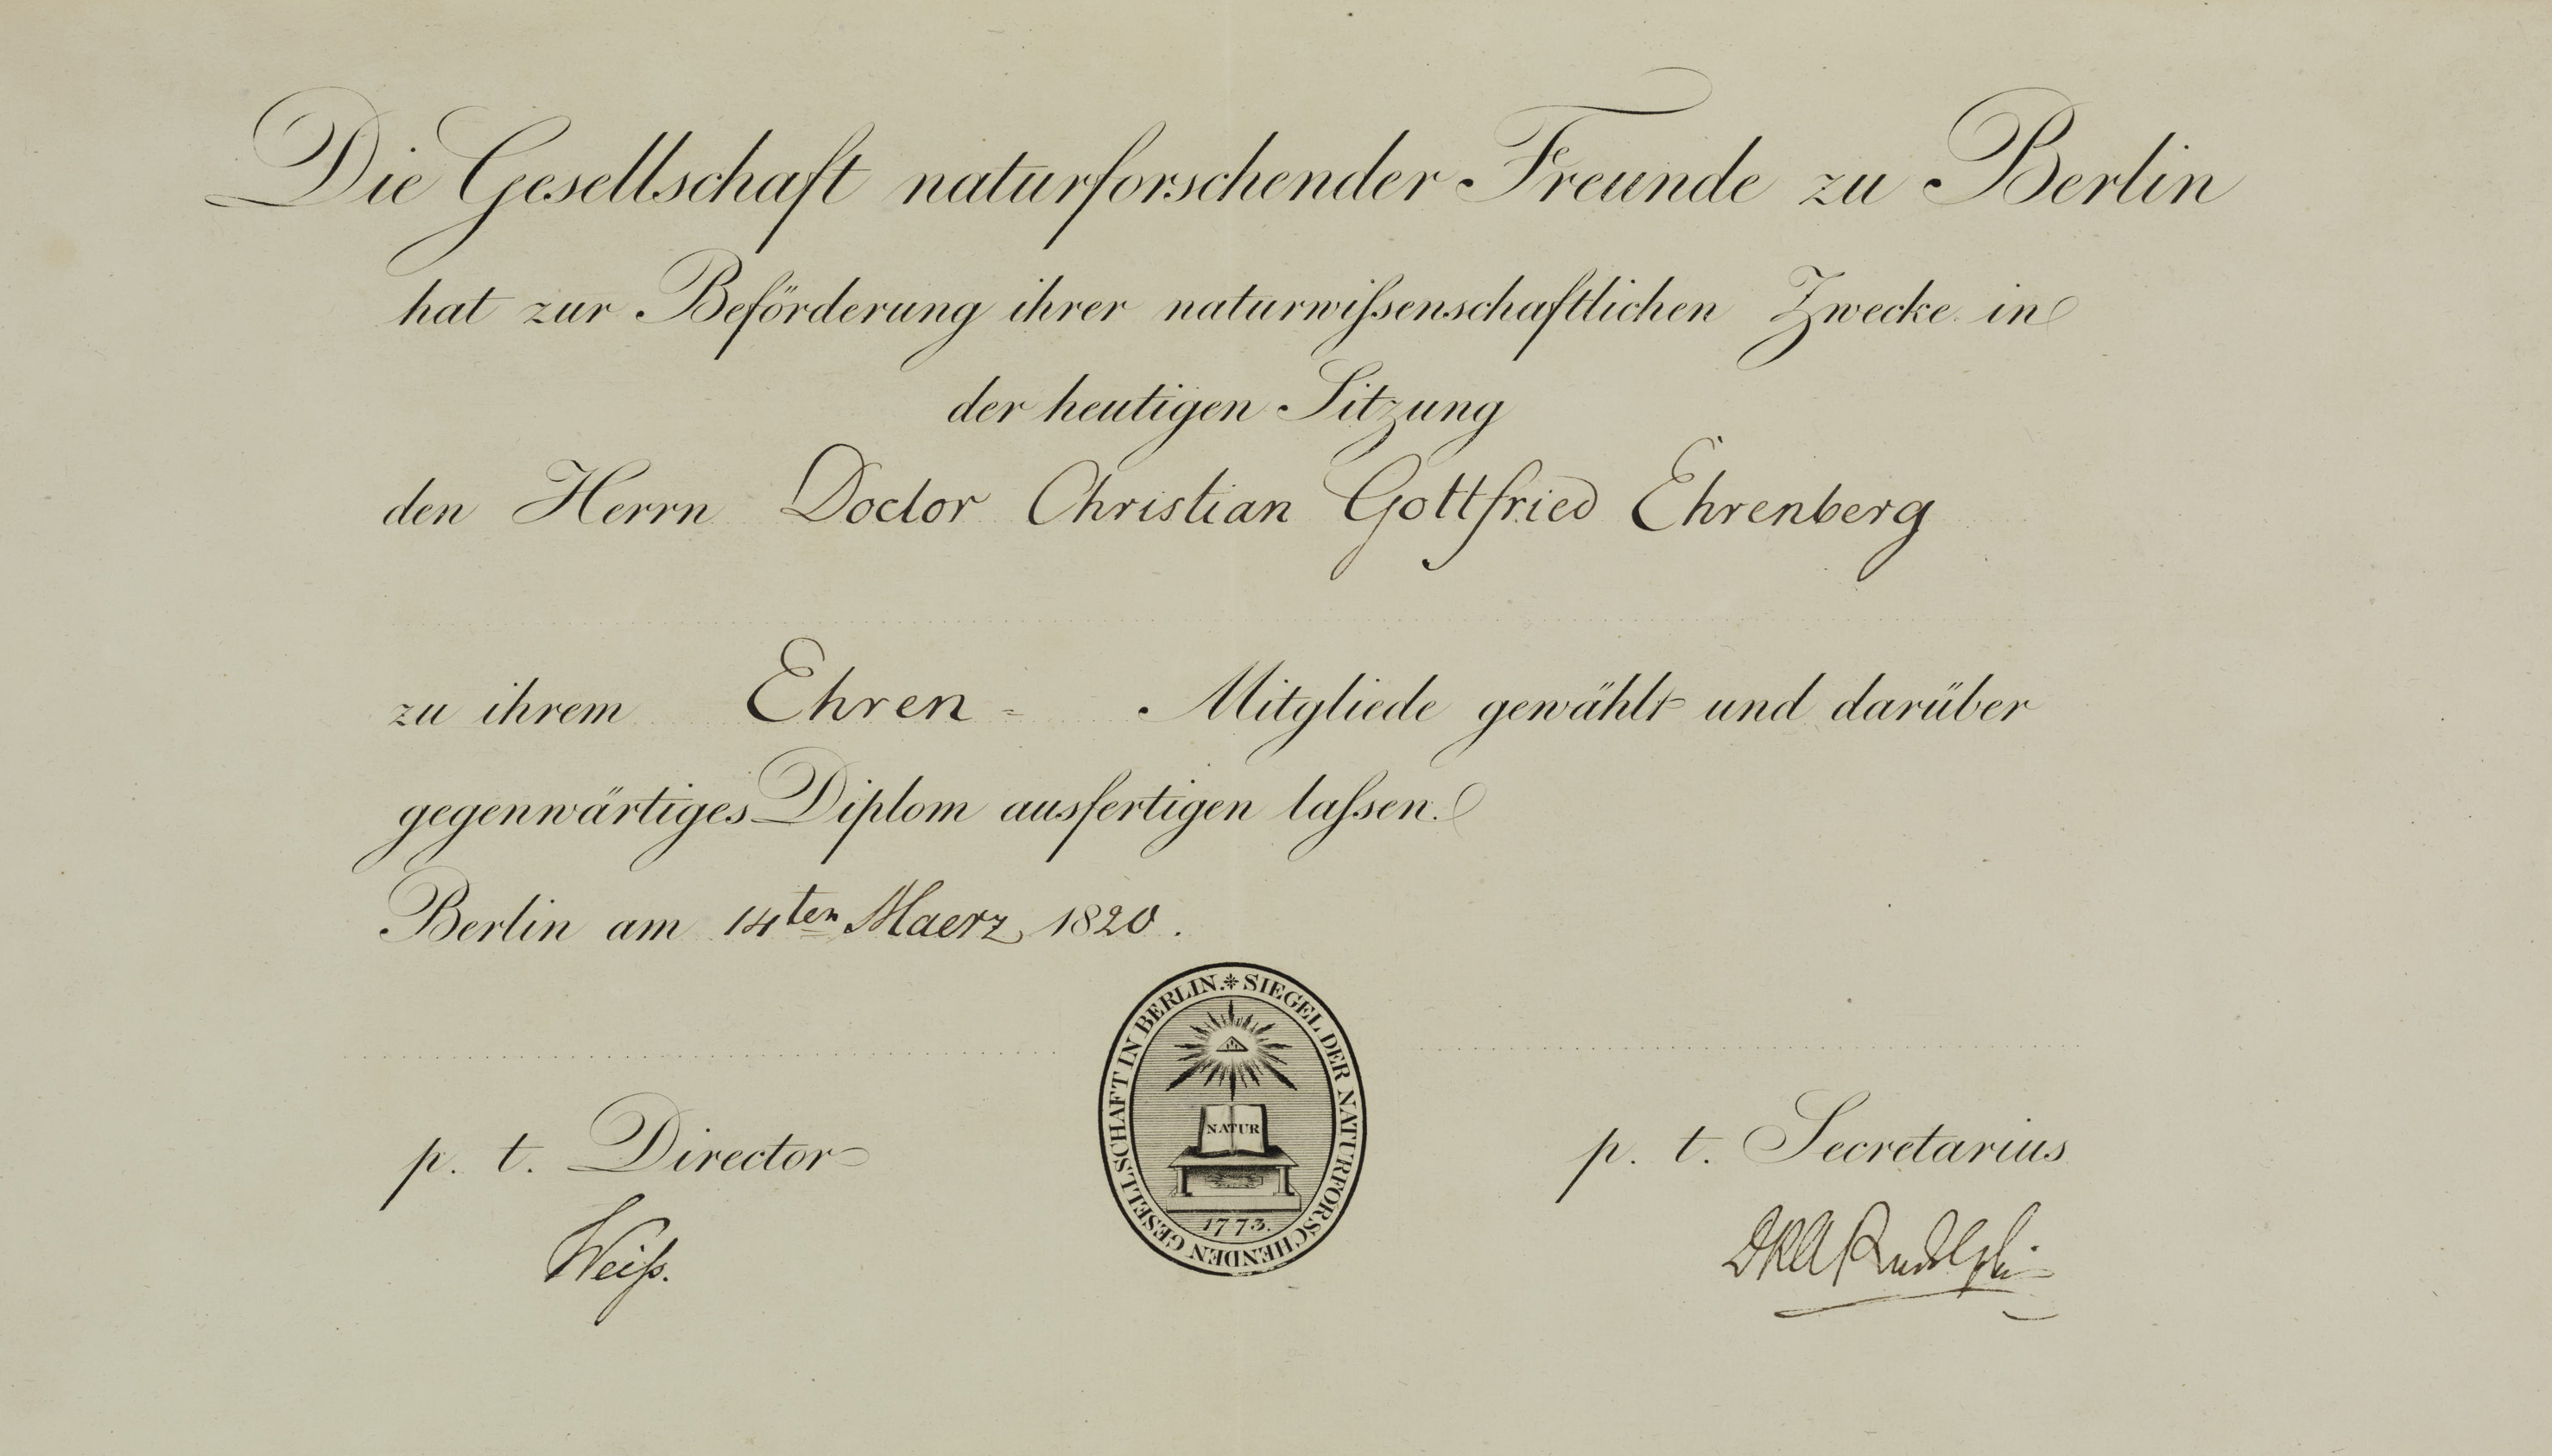 Die Gesellschaft naturforschender Freunde zu Berlin
hat zur Beförderung ihrer naturwißenschaftlichen Zwecke in
der heutigen Sitzung
den Herrn Doctor Christian Gottfried Ehrenberg
zu ihrem Ehren = Mitgliede gewählt und darüber
gegenwärtiges Diplom ausfertigen laßen.
Berlin am 14ten Maerz 1820.
SIEGEL DER NATURFORSCHENDEN GESELLSCHAFT IN BERLIN.
NATUR
1773.
p. t. Director
p. t. Secretarius
Weiß.
Rudolphi